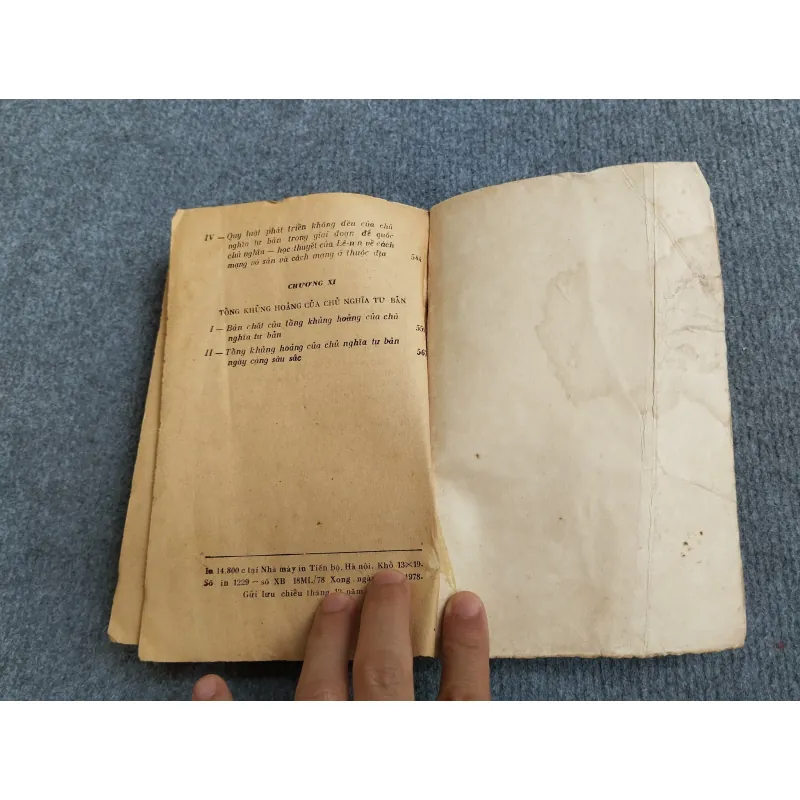 IV — Quy luật phát triển không đều của chủ
nghĩa tư bản trong giai đoạn đế quốc
chủ nghĩa — học thuyết của Lê-nin về cách
mạng vô sản và cách mạng ở thuộc địa
CHƯƠNG XI
TỔNG KHỦNG HOẢNG CỦA CHỦ NGHĨA TƯ BẢN
I — Bản chất của tổng khủng hoảng của chủ
nghĩa tư bản
II — Tổng khủng hoảng của chủ nghĩa tư bản
ngày càng sâu sắc
In 14.800 c tại Nhà máy in Tiến bộ, Hà nội. Khổ 13×19.
Số in 1229 — số XB 18ML/78 Xong ngày 1978.
Gửi lưu chiểu tháng năm